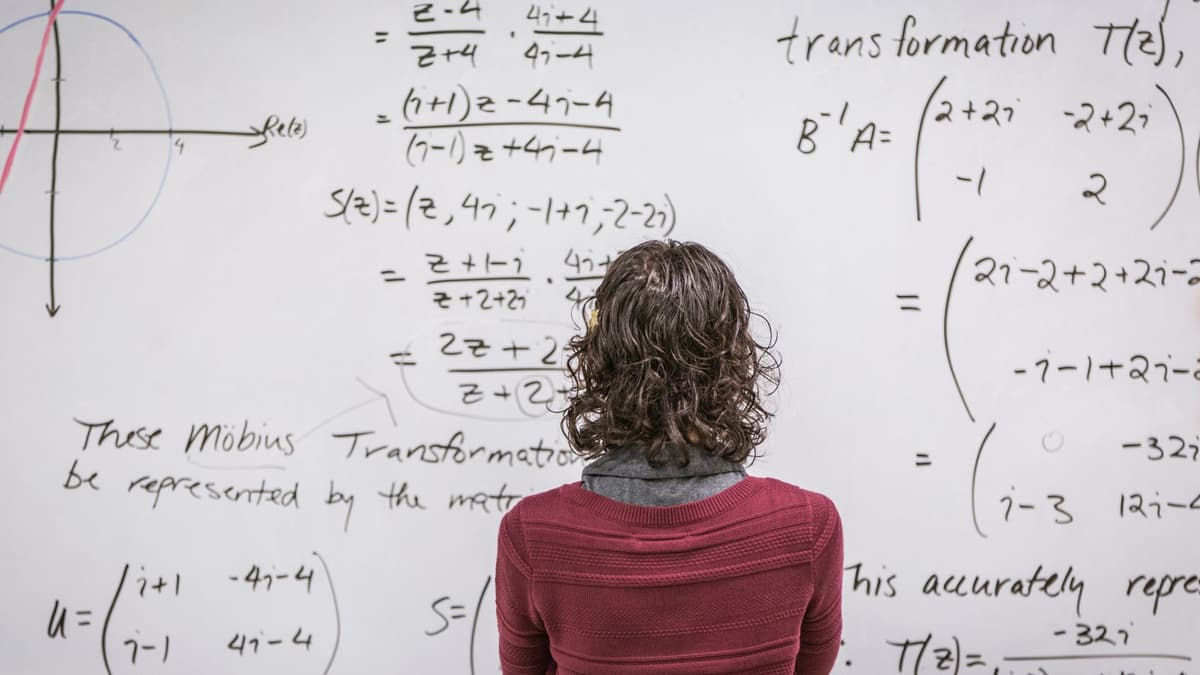 Re(z)
2 4
= z-4/z+4 · 4i+4/4i-4
= (i+1)z-4i-4/(i-1)z+4i-4
S(z)=(z,4i;-1+i,-2-2i)
= z+1-i/z+2+2i · 4i+
= 2z+2/z+2
These Möbius Transformation
be represented by the
u= (i+1 -4i-4
i-1 4i-4)
S= (
transformation T(z),
B⁻¹A= (2+2i -2+2i
-1 2)
= (2i-2+2+2i-
-i-1+2i-
= (0 -32i
i-3 12i-
This accurately
T(z)= -32i